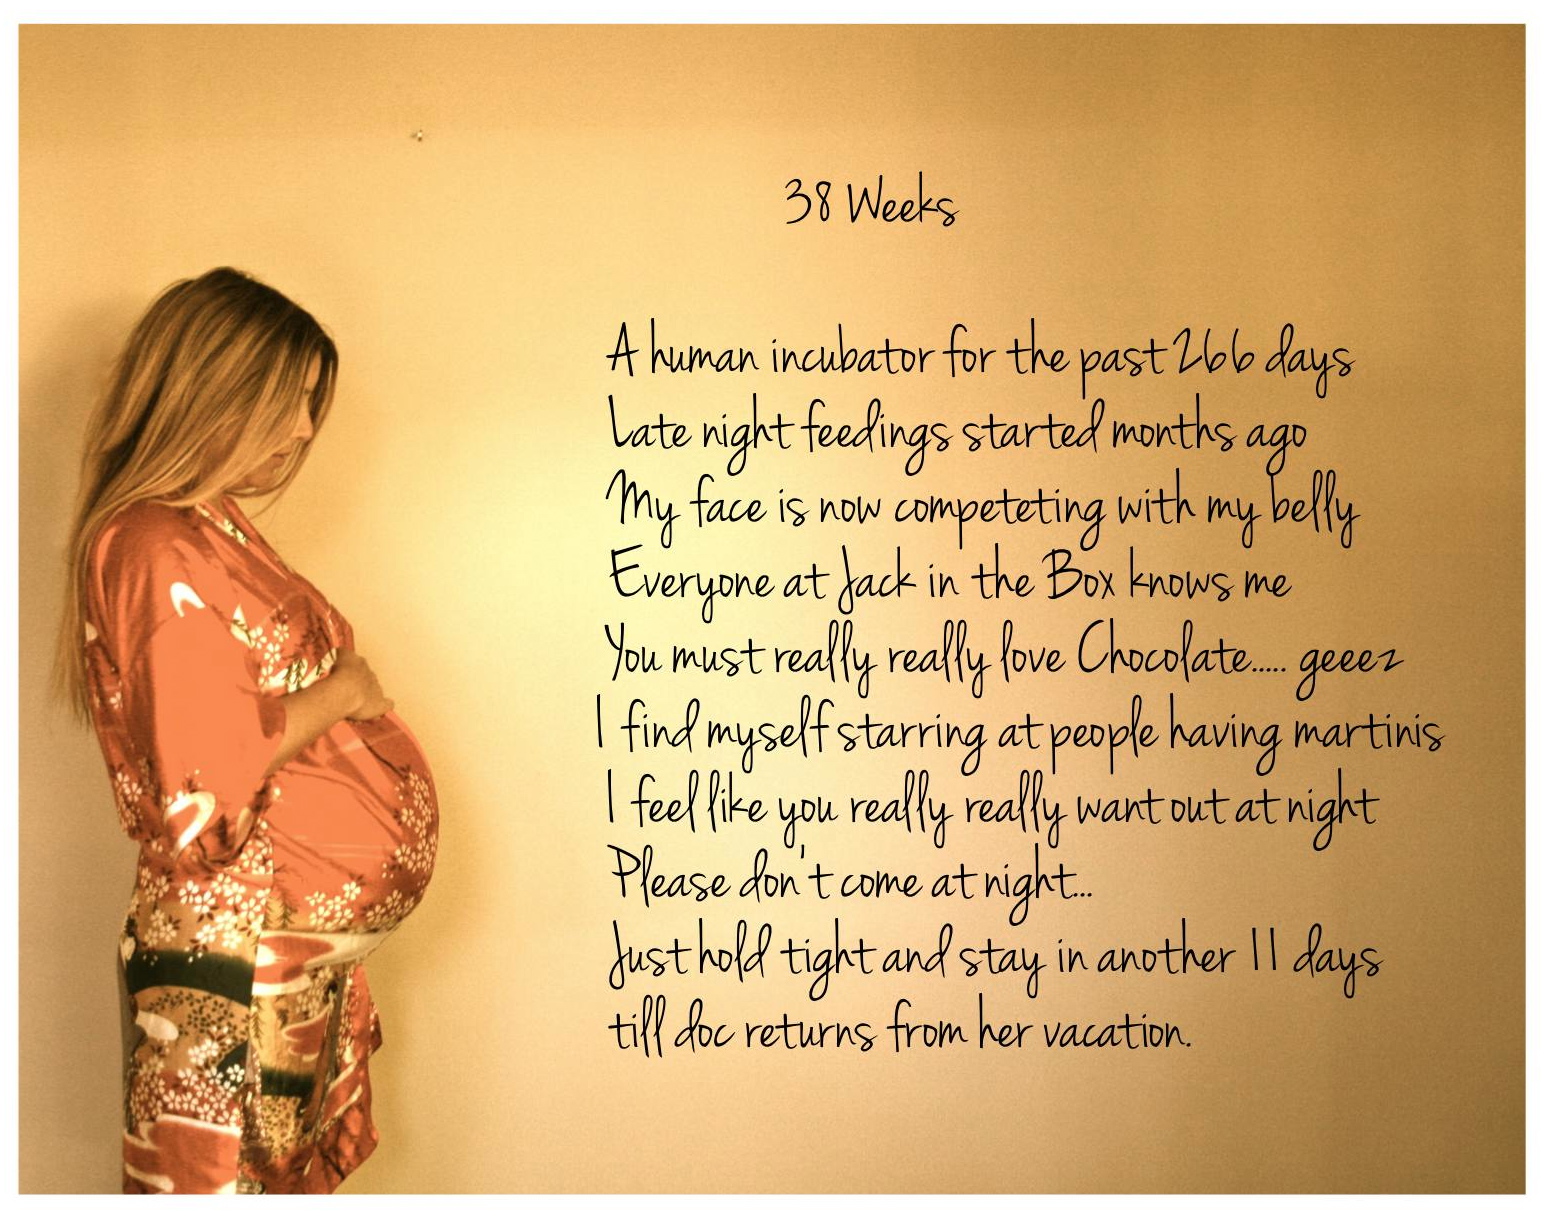 38 Weeks
A human incubator for the past 266 days
Late night feedings started months ago
My face is now competeting with my belly
Everyone at Jack in the Box knows me
You must really really love Chocolate..... geeez
I find myself starring at people having martinis
I feel like you really really want out at night
Please don't come at night...
Just hold tight and stay in another 11 days
till doc returns from her vacation.